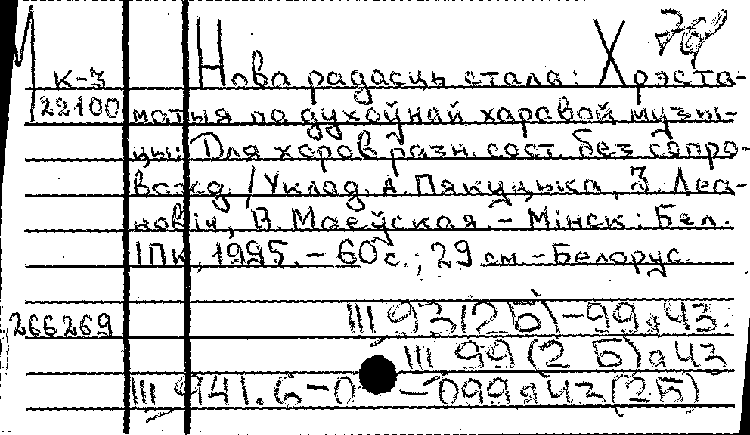 К-3 Нова радасць стала: Хрэста-
22100 матыя па духоўнай харавой музы-
цы: Для хоров разн. сост. без сопро-
вожд. / Уклад. А. Пякуцька, З. Леа-
новіч, В. Маеўская. – Мінск: Бел.
ІПК, 1995. – 60 с.; 29 см. – Белорус.
266269 III 93(2Б)-99я43.
III 99(2 Б)я43
III 941.6-0 -099я43(2Б)